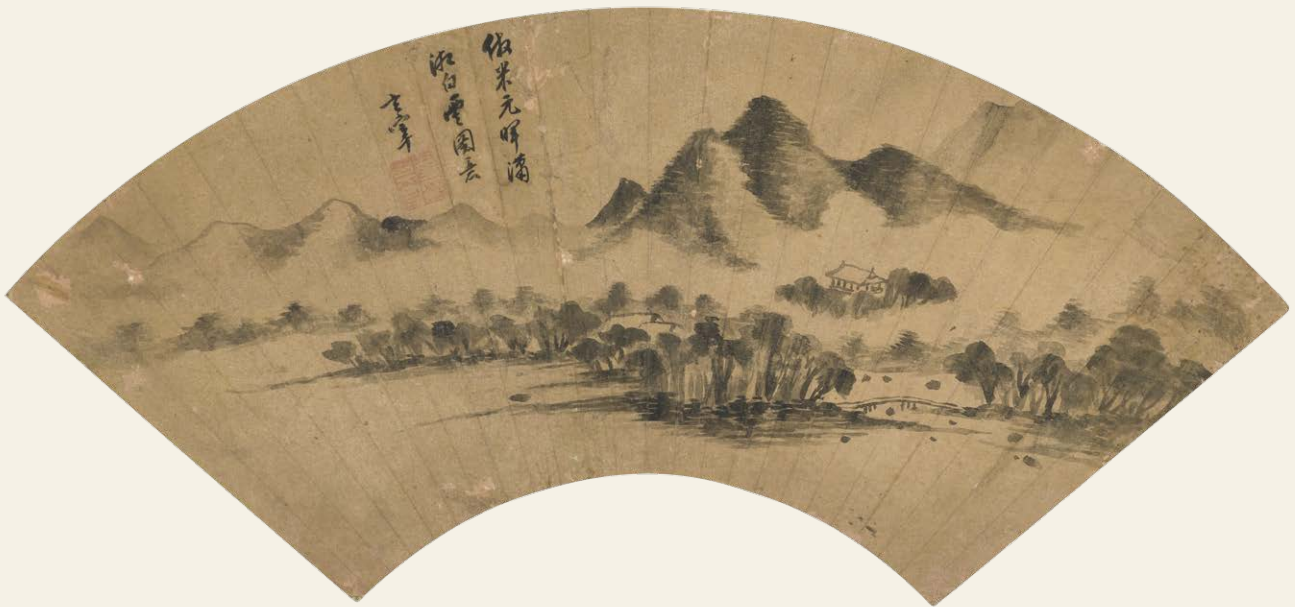 倣米元暉瀟
湘白雲圖意
玄宰